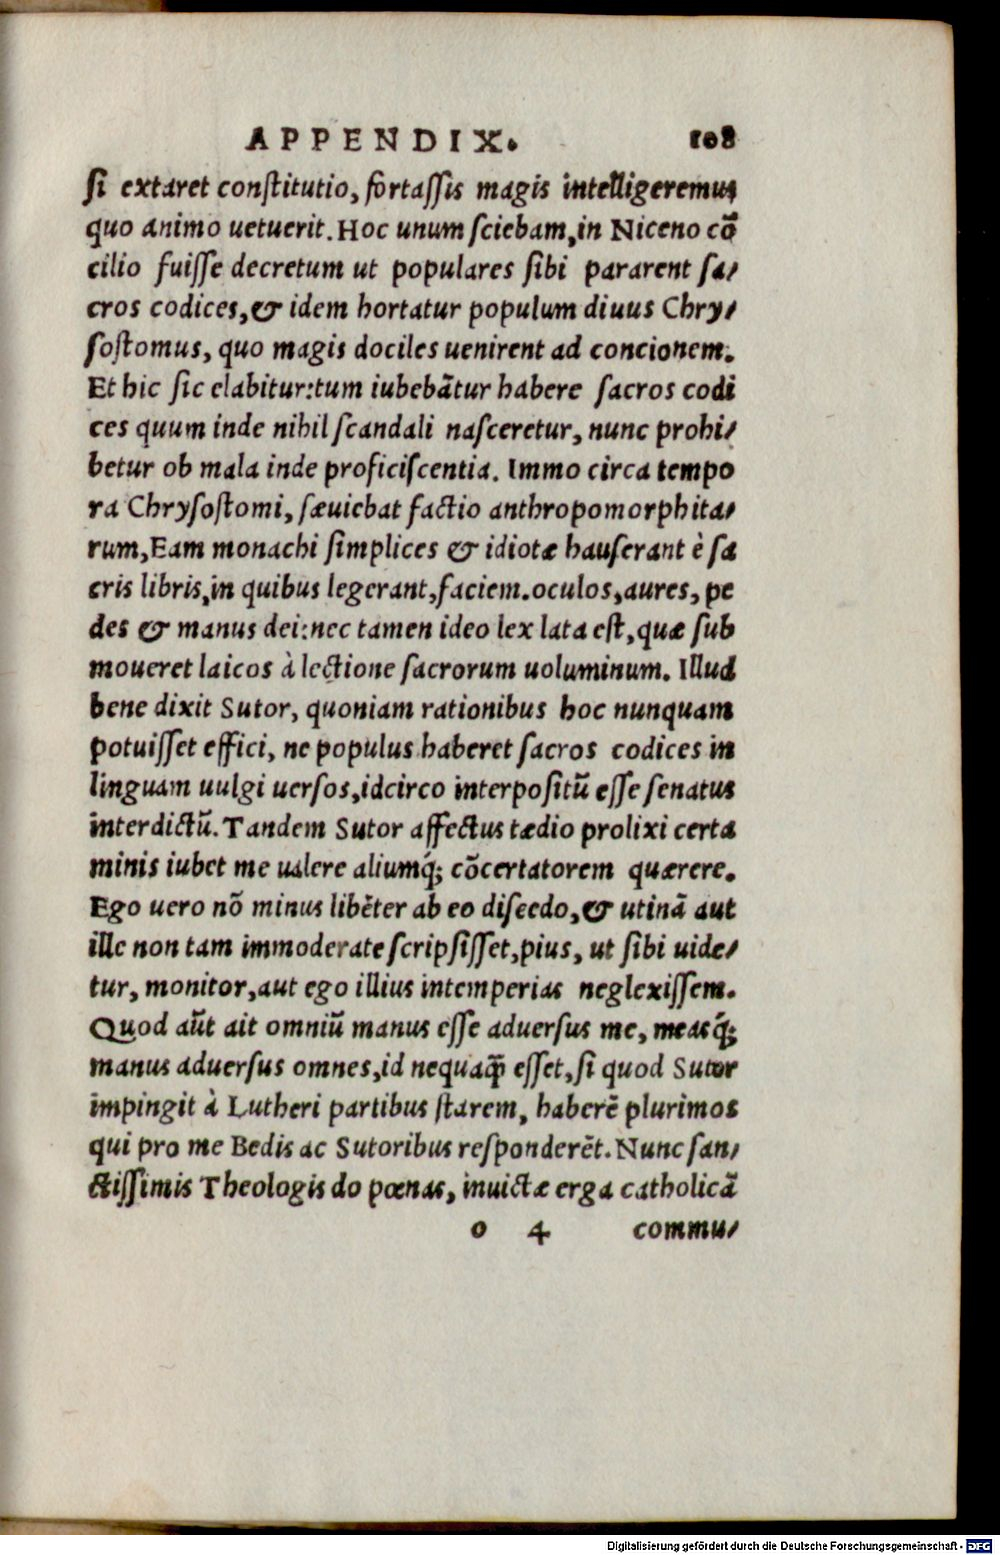 APPENDIX. 108
si extaret constitutio, fortassis magis intelligeremus
quo animo uetuerit. Hoc unum sciebam, in Niceno cõ
cilio fuisse decretum ut populares sibi pararent sa/
cros codices, & idem hortatur populum diuus Chry/
sostomus, quo magis dociles uenirent ad concionem.
Et hic sic elabitur: tum iubebãtur habere sacros codi
ces quum inde nihil scandali nasceretur, nunc prohi/
betur ob mala inde proficiscentia. Immo circa tempo
ra Chrysostomi, sæuiebat factio anthropomorphita/
rum, Eam monachi simplices & idiotæ hauserant è sa
cris libris, in quibus legerant, faciem. oculos, aures, pe
des & manus dei: nec tamen ideo lex lata est, quæ sub
moueret laicos à lectione sacrorum uoluminum. Illud
bene dixit Sutor, quoniam rationibus hoc nunquam
potuisset effici, ne populus haberet sacros codices in
linguam uulgi uersos, idcirco interpositũ esse senatus
interdictũ. Tandem Sutor affectus tædio prolixi certa
minis iubet me ualere aliumq́; cõcertatorem quærere.
Ego uero nõ minus libẽter ab eo discedo, & utinã aut
ille non tam immoderate scripsisset, pius, ut sibi uide/
tur, monitor, aut ego illius intemperias neglexissem.
Quod aũt ait omniũ manus esse aduersus me, measq́;
manus aduersus omnes, id nequaq̃ esset, si quod Sutor
impingit à Lutheri partibus starem, haberẽ plurimos
qui pro me Bedis ac Sutoribus responderẽt. Nunc san/
ctissimis Theologis do pœnas, inuictæ erga catholicã
o 4 commu/
Digitalisierung gefördert durch die Deutsche Forschungsgemeinschaft - DFG